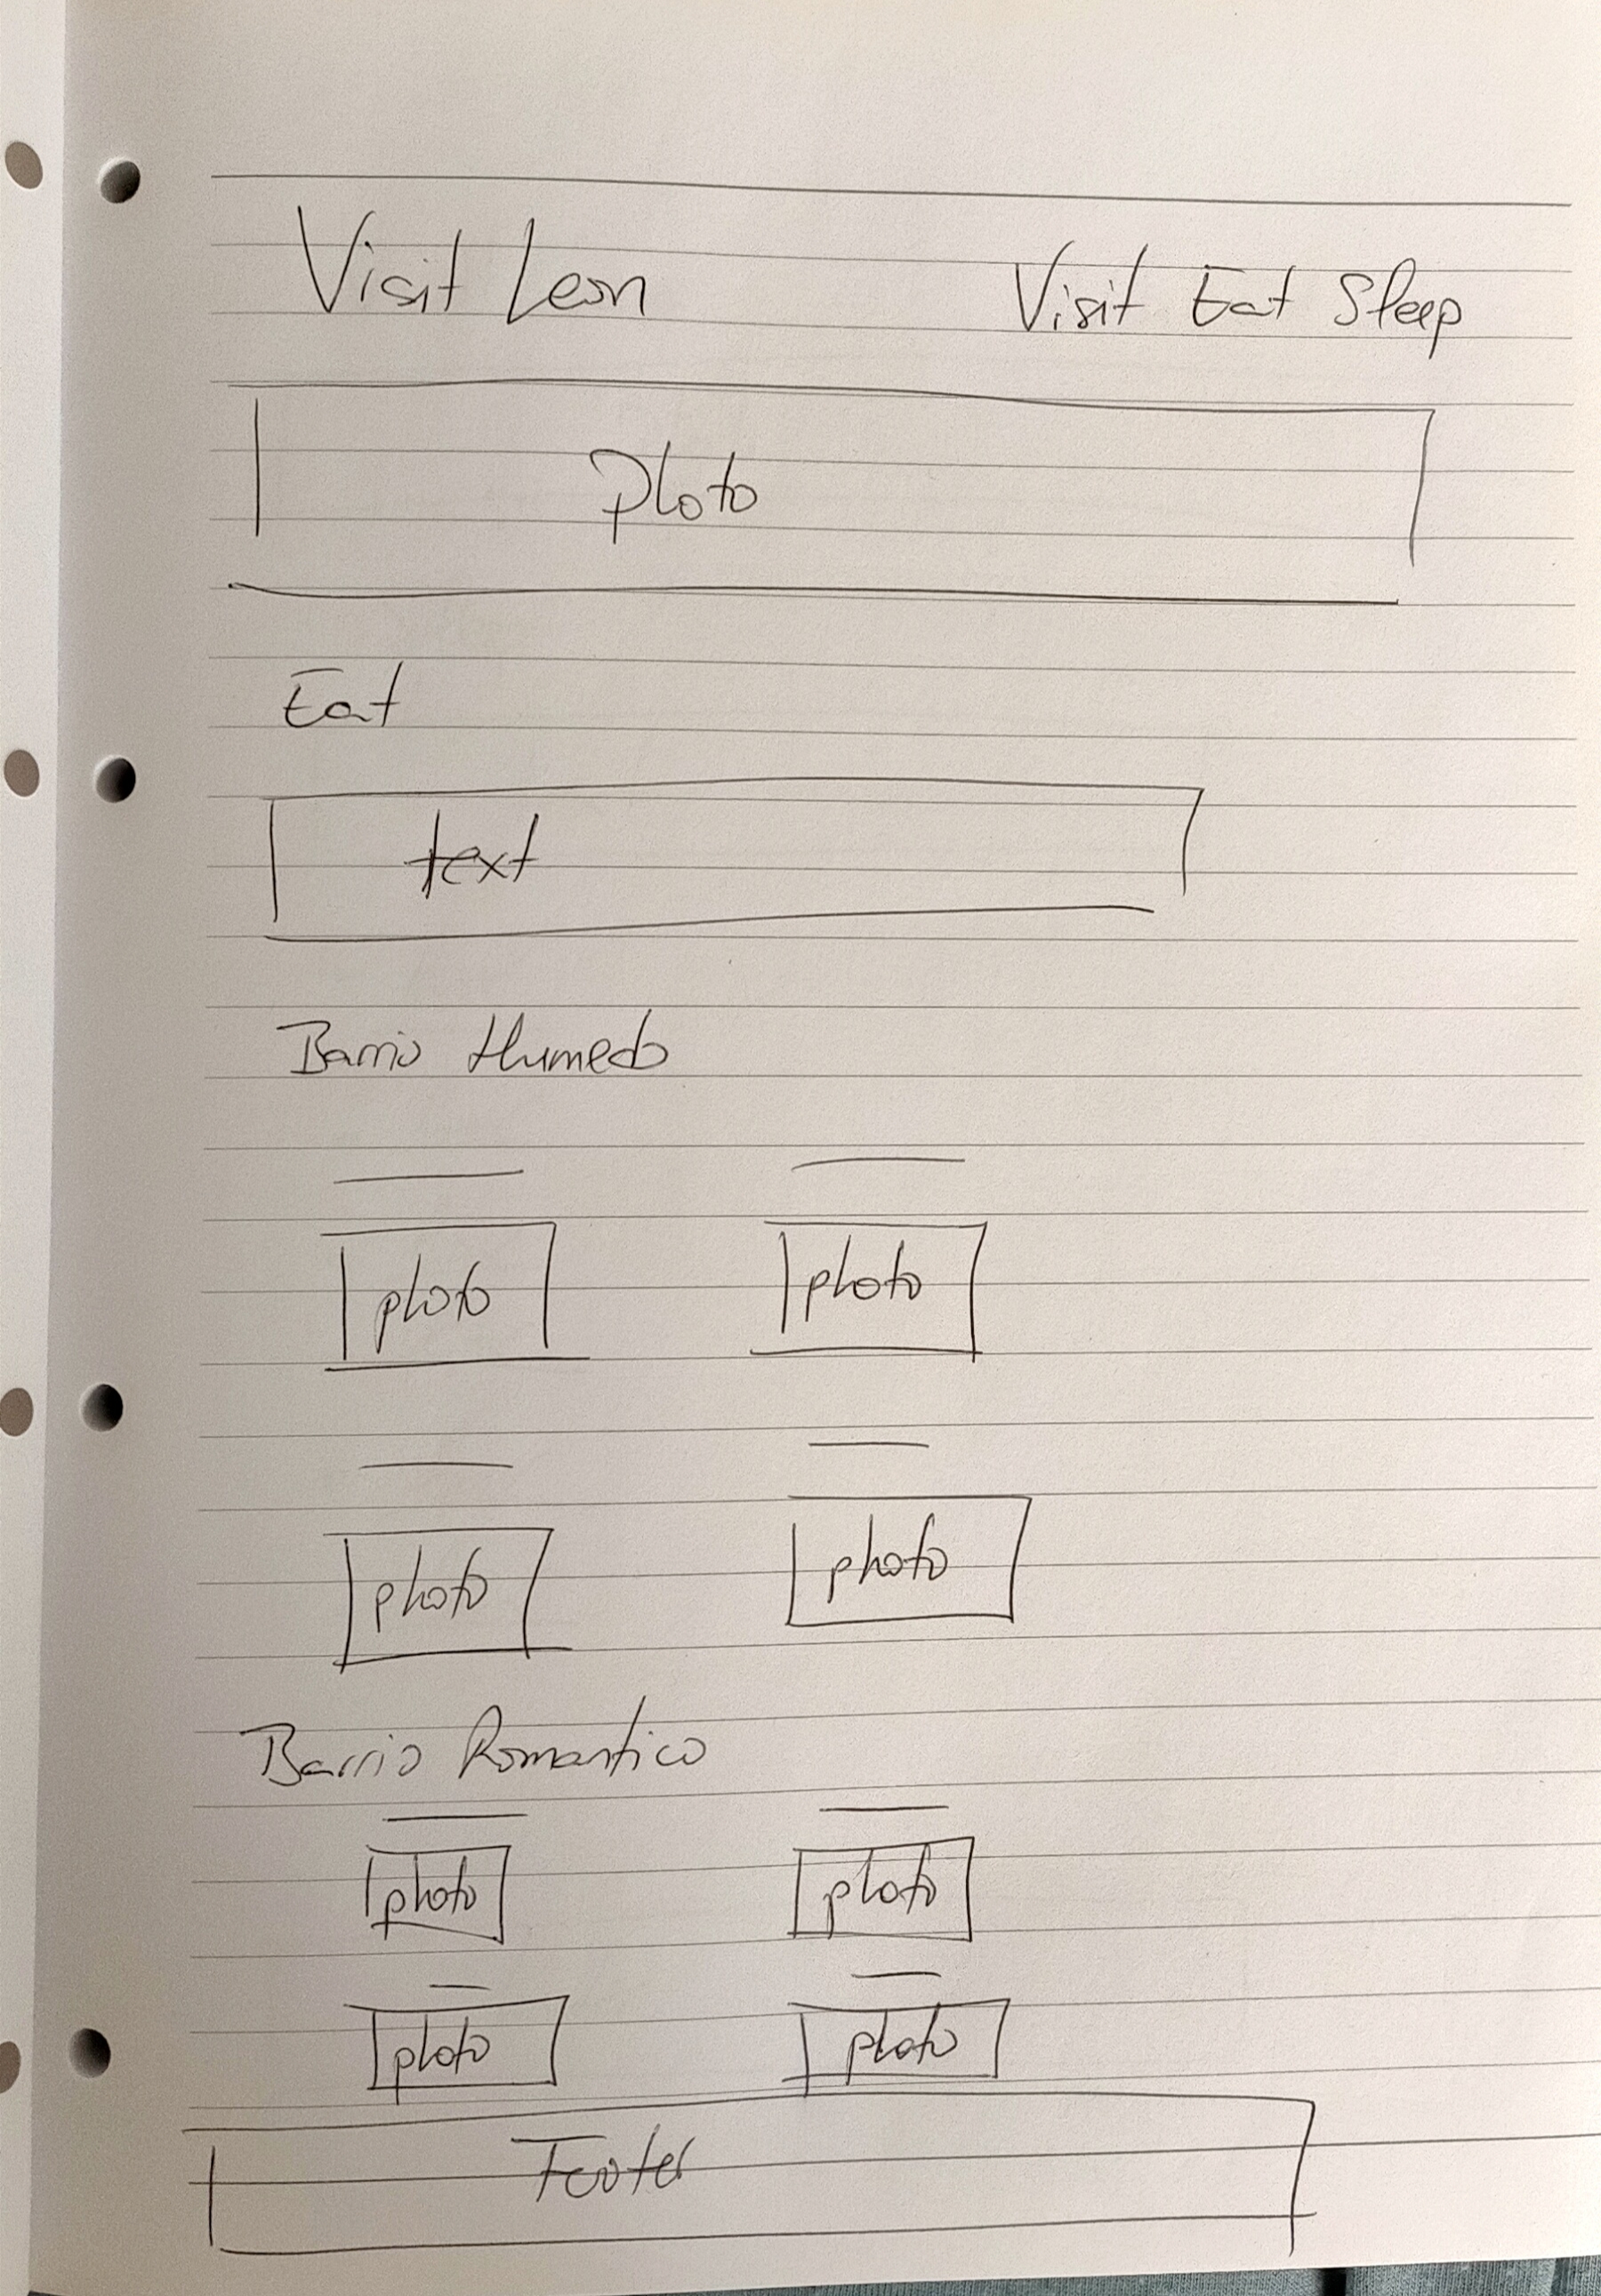 Visit Leon Visit Eat Sleep
Photo
Eat
text
Barrio Humedo
photo photo
photo photo
Barrio Romantico
photo photo
photo photo
Footer